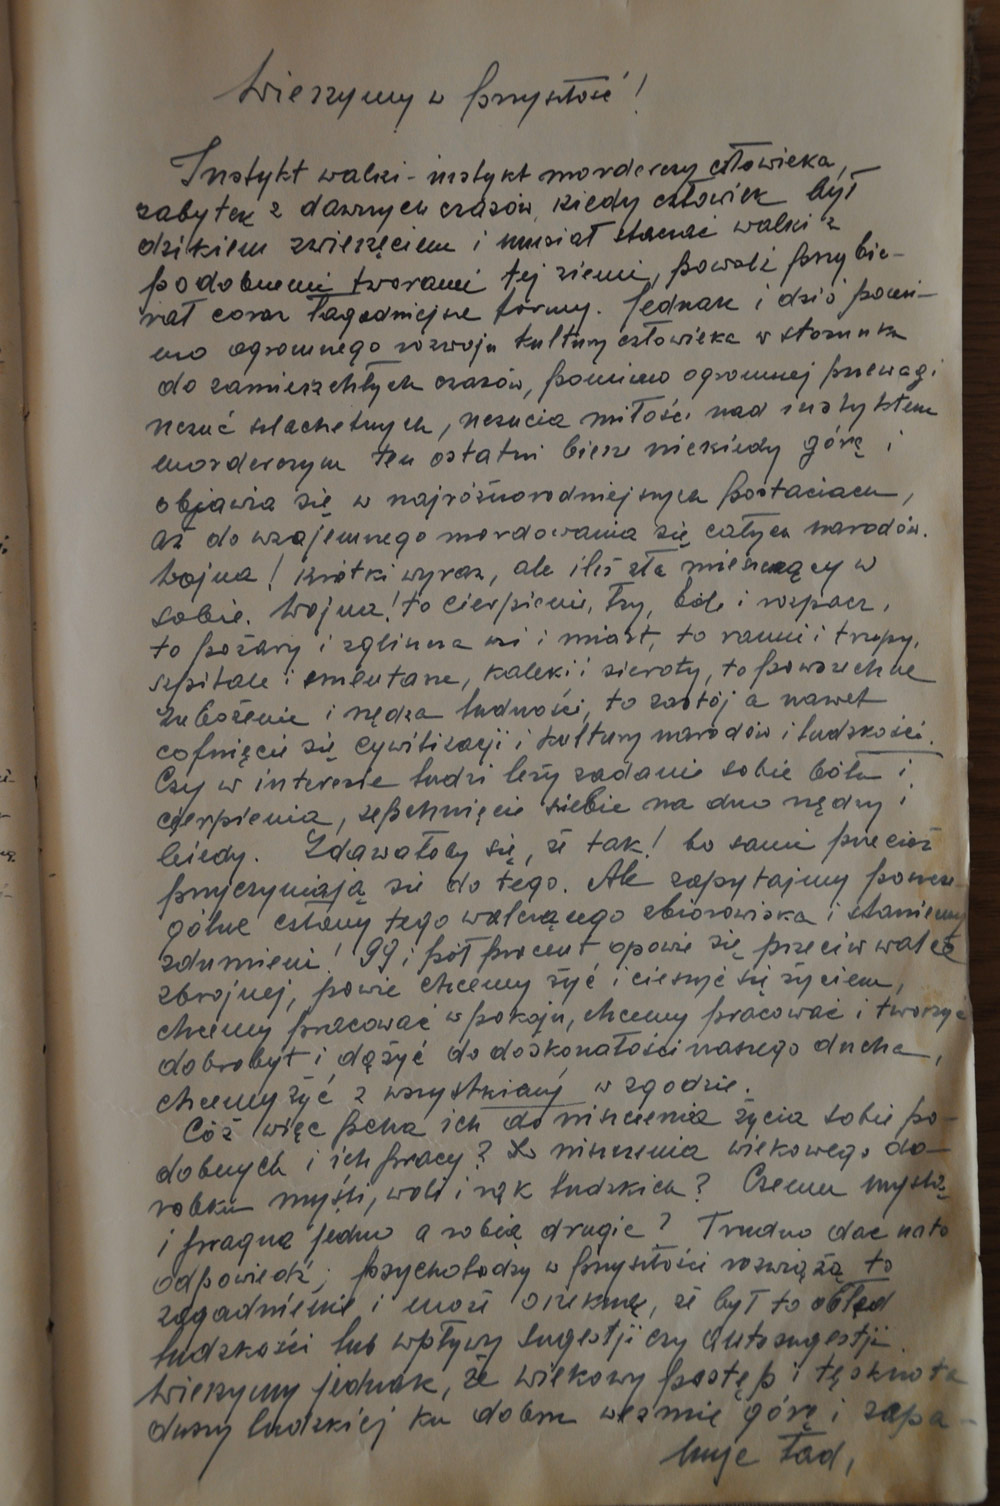 Wierzymy w przyszłość!
Instykt walki - instykt morderczy człowieka,
zabytek z dawnych czasów, kiedy człowiek był
dzikiem zwierzęciem i musiał staczać walki z
podobnemi tworami tej ziemi, powoli przybie-
rał coraz łagodniejsze formy. Jednak i dziś pomi-
mo ogromnego rozwoju kultury człowieka w stosunku
do zamierzchłych czasów, pomimo ogromnej przewagi
uczuć szlachetnych, uczucia miłości nad instyktem
morderczym ten ostatni bierze niekiedy górę i
objawia się w najróżnorodniejszych postaciach,
aż do wzajemnego mordowania się całych narodów.
Wojna! krótki wyraz, ale ileż zła mieszczący w
sobie. Wojna! to cierpienie, łzy, ból i rozpacz,
to pożary i zgliszcza wsi i miast, to ranni i trupy,
szpitale i cmentarze, kaleki i sieroty, to powszechne
zubożenie i nędza ludności, to zastój a nawet
cofnięcie się cywilizacji i kultury narodów i ludzkości.
Czy w interesie ludzi leży zadanie sobie bólu i
cierpienia, zepchnięcie siebie na dno nędzy i
biedy. Zdawałoby się, że tak! bo sami przecież
przyczyniają się do tego. Ale zapytajmy poszcze-
gólne człony tego walczącego zbiorowiska i staniemy
zdumieni! 99 i pół procent opowie się przeciw walce
zbrojnej, powie chcemy żyć i cieszyć się życiem,
chcemy pracować w pokoju, chcemy pracować i tworzyć
dobrobyt i dążyć do doskonałości naszego ducha,
chcemy żyć z wszystkiemi w zgodzie.
Cóż więc pcha ich do niszczenia życia sobie po-
dobnych i ich pracy? Do niszczenia wiekowego do-
robku myśli, woli i rąk ludzkich? Czemu myślą
i pragną jedno a robią drugie? Trudno dać na to
odpowiedź; psycholodzy w przyszłości rozwiążą to
zagadnienie i może orzekną, że był to obłęd
ludzkości lub wpływy sugestji czy autosugestji
Wierzymy jednak, że wiekowy postęp i tęsknota
duszy ludzkiej ku dobru weźmie górę i zapa-
nuje ład,